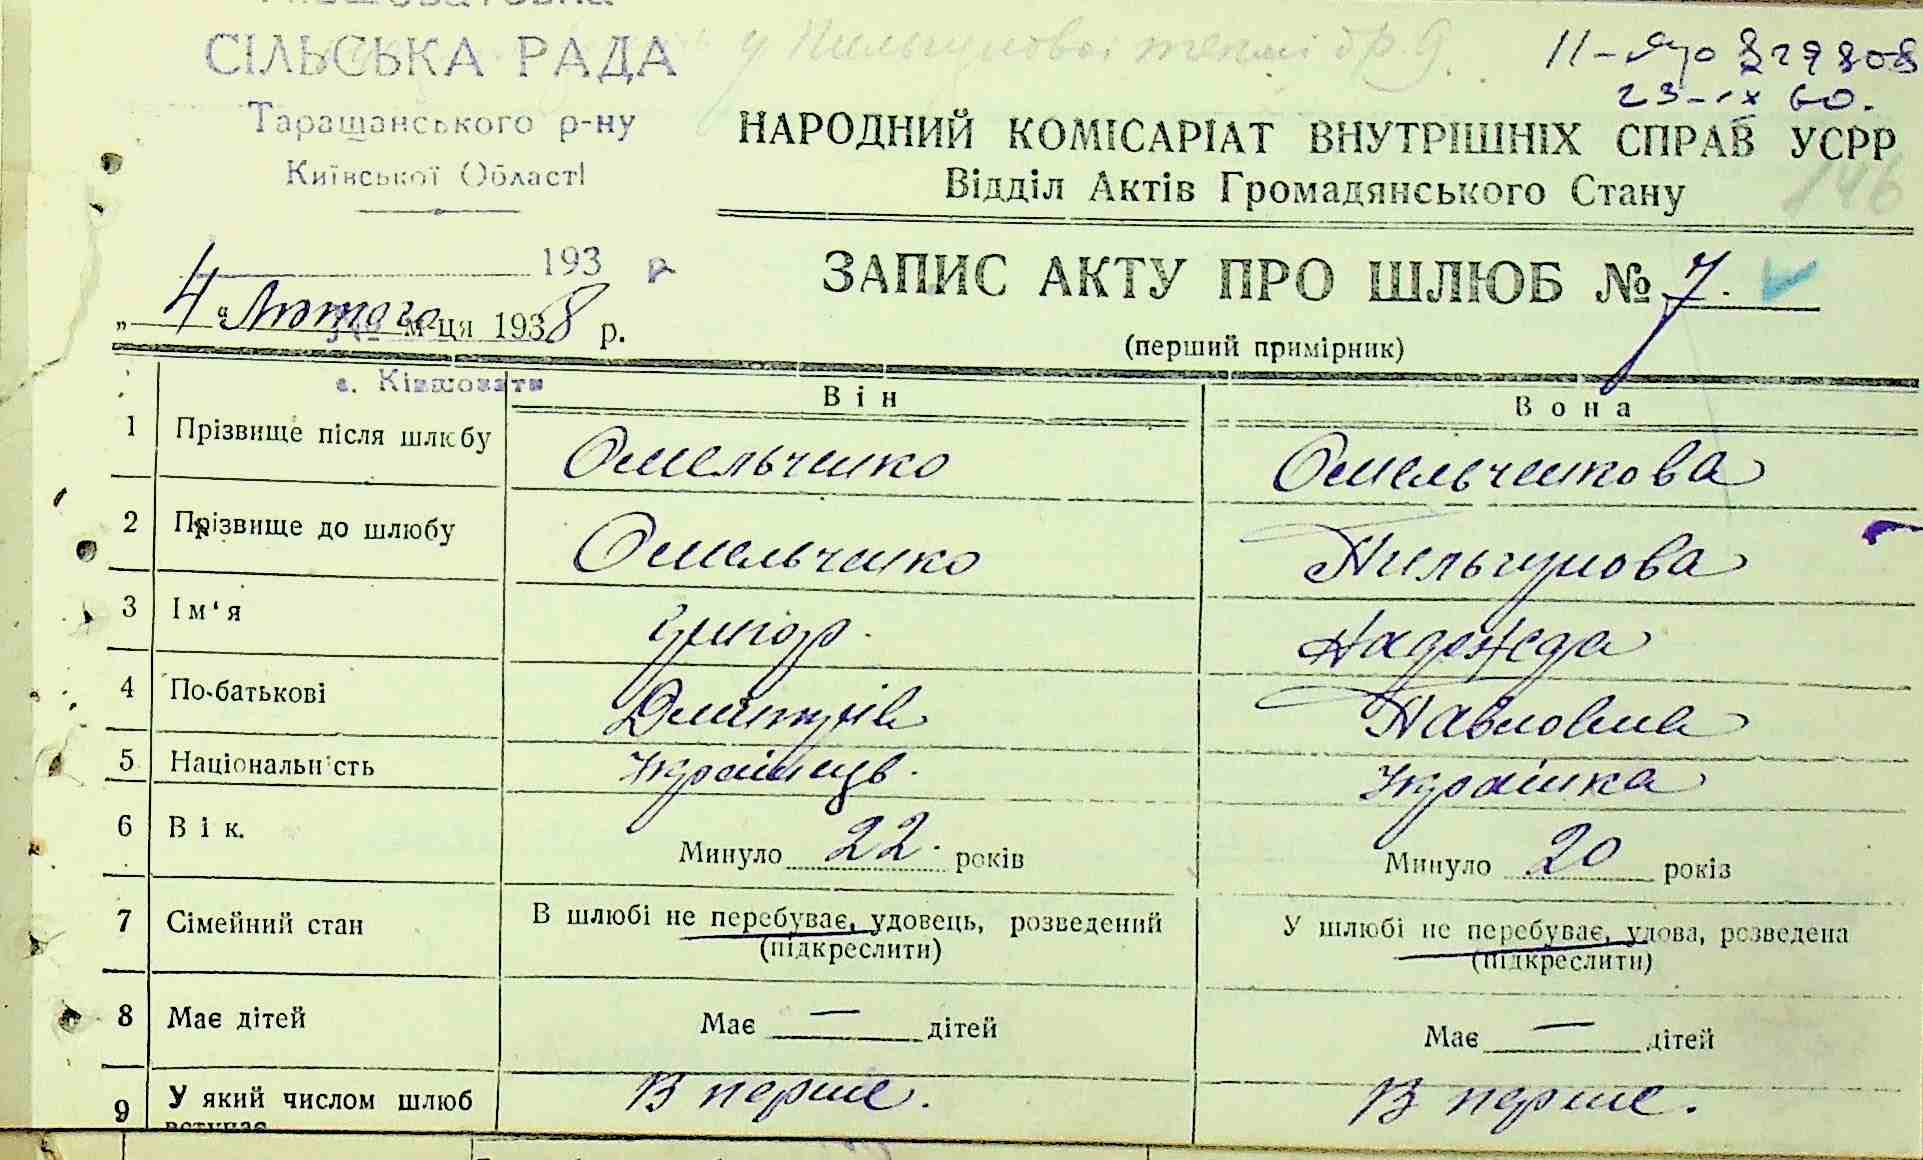 СІЛЬСЬКА РАДА
Таращанського р-ну
Київської Області
II-
23-IX 60.
НАРОДНИЙ КОМІСАРІАТ ВНУТРІШНІХ СПРАВ УСРР
Відділ Актів Громадянського Стану
146
193 р
ЗАПИС АКТУ ПРО ШЛЮБ № 7.
„ 4 “ Лютого м-ця 1938 р.
(перший примірник)
с.Ківшовати
Він
Вона
1 Прізвище після шлюбу Омельченко Омельченкова
2 Прізвище до шлюбу Омельченко
3 Ім'я Григор. Надежда
4 По-батькові Дмитрів Павловна
5 Національність Українець. Українка
6 Вік. Минуло 22. років Минуло 20 років
7 Сімейний стан В шлюбі не перебуває, удовець, розведений У шлюбі не перебуває, удова, розведена
(підкреслити) (підкреслити)
8 Має дітей Має — дітей Має — дітей
9 У який числом шлюб В перше. В перше.
вступає